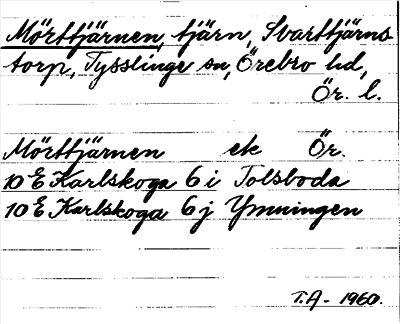 Mörttjärnen, tjärn, Svarttjärns
torp, Tysslinge sn, Örebro hd,
Ör. l.
Mörttjärnen ek Ör.
10 E Karlskoga 6 i Tolsboda
10 E Karlskoga 6 j Ymningen
T.A - 1960.